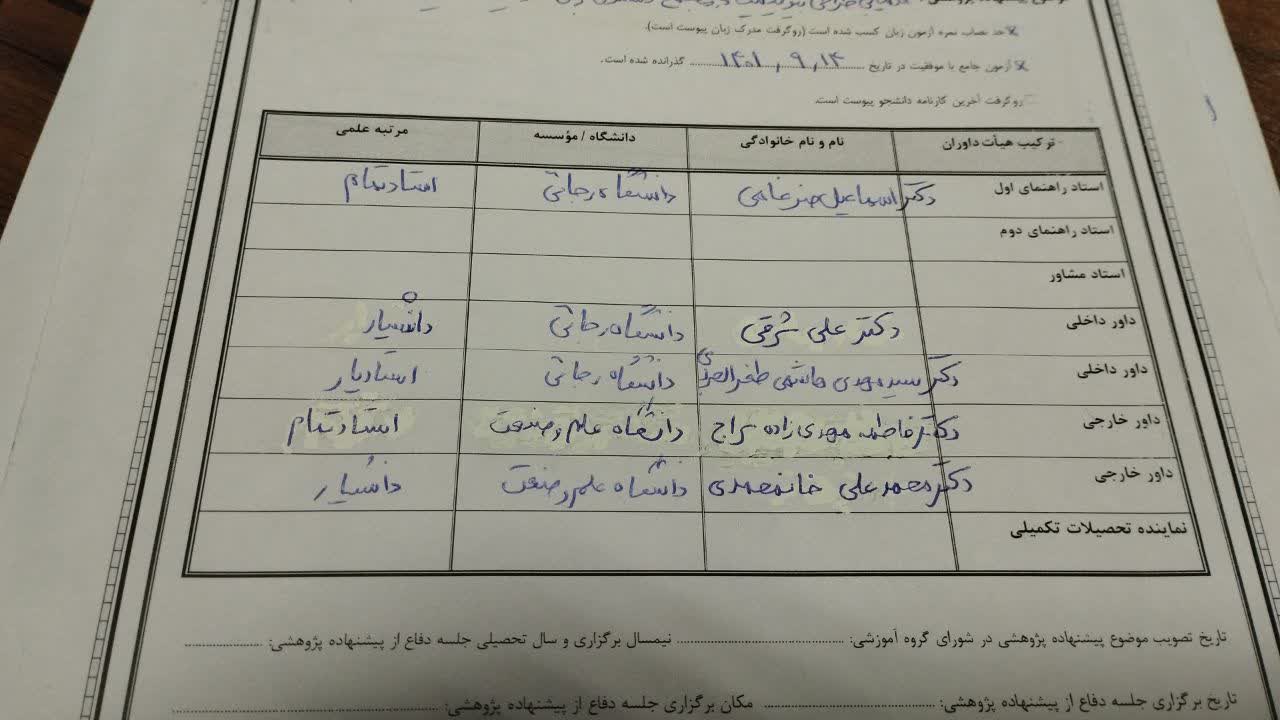 حد نصاب نمره آزمون زبان کسب شده است (روگرفت مدرک زبان پیوست است).
آزمون جامع با موفقیت در تاریخ ۱۴۰۱,۹,۱۴ گذرانده شده است.
روگرفت آخرین کارنامه دانشجو پیوست است.
ترکیب هیأت داوران نام و نام خانوادگی دانشگاه / مؤسسه مرتبه علمی
استاد راهنمای اول دکتر اسماعیل ضرغامی دانشگاه رجائی استاد تمام
استاد راهنمای دوم
استاد مشاور
داور داخلی دکتر علی شرقی دانشگاه رجائی دانشیار
داور داخلی دکتر سید مهدی هاشمی دانشگاه رجائی استادیار
داور خارجی دکتر فاطمه مهدی زاده سراج دانشگاه علم و صنعت استاد تمام
داور خارجی دکتر محمد علی خانمحمدی دانشگاه علم و صنعت دانشیار
نماینده تحصیلات تکمیلی
تاریخ تصویب موضوع پیشنهاده پژوهشی در شورای گروه آموزشی: نیمسال برگزاری و سال تحصیلی جلسه دفاع از پیشنهاده پژوهشی:
تاریخ برگزاری جلسه دفاع از پیشنهاده پژوهشی: مکان برگزاری جلسه دفاع از پیشنهاده پژوهشی: